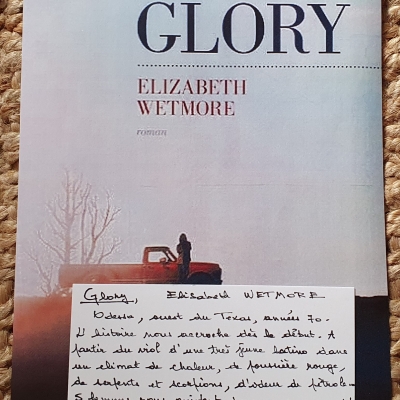 GLORY
ELIZABETH
WETMORE
roman
Glory, Elisabeth WETMORE
Odessa, ouest du Texas, années 70.
L'histoire nous accroche dès le début. A
partir du viol d'une très jeune latino dans
un climat de chaleur, de poussière rouge,
de serpents et scorpions, d'odeur de pétrole
5 femmes